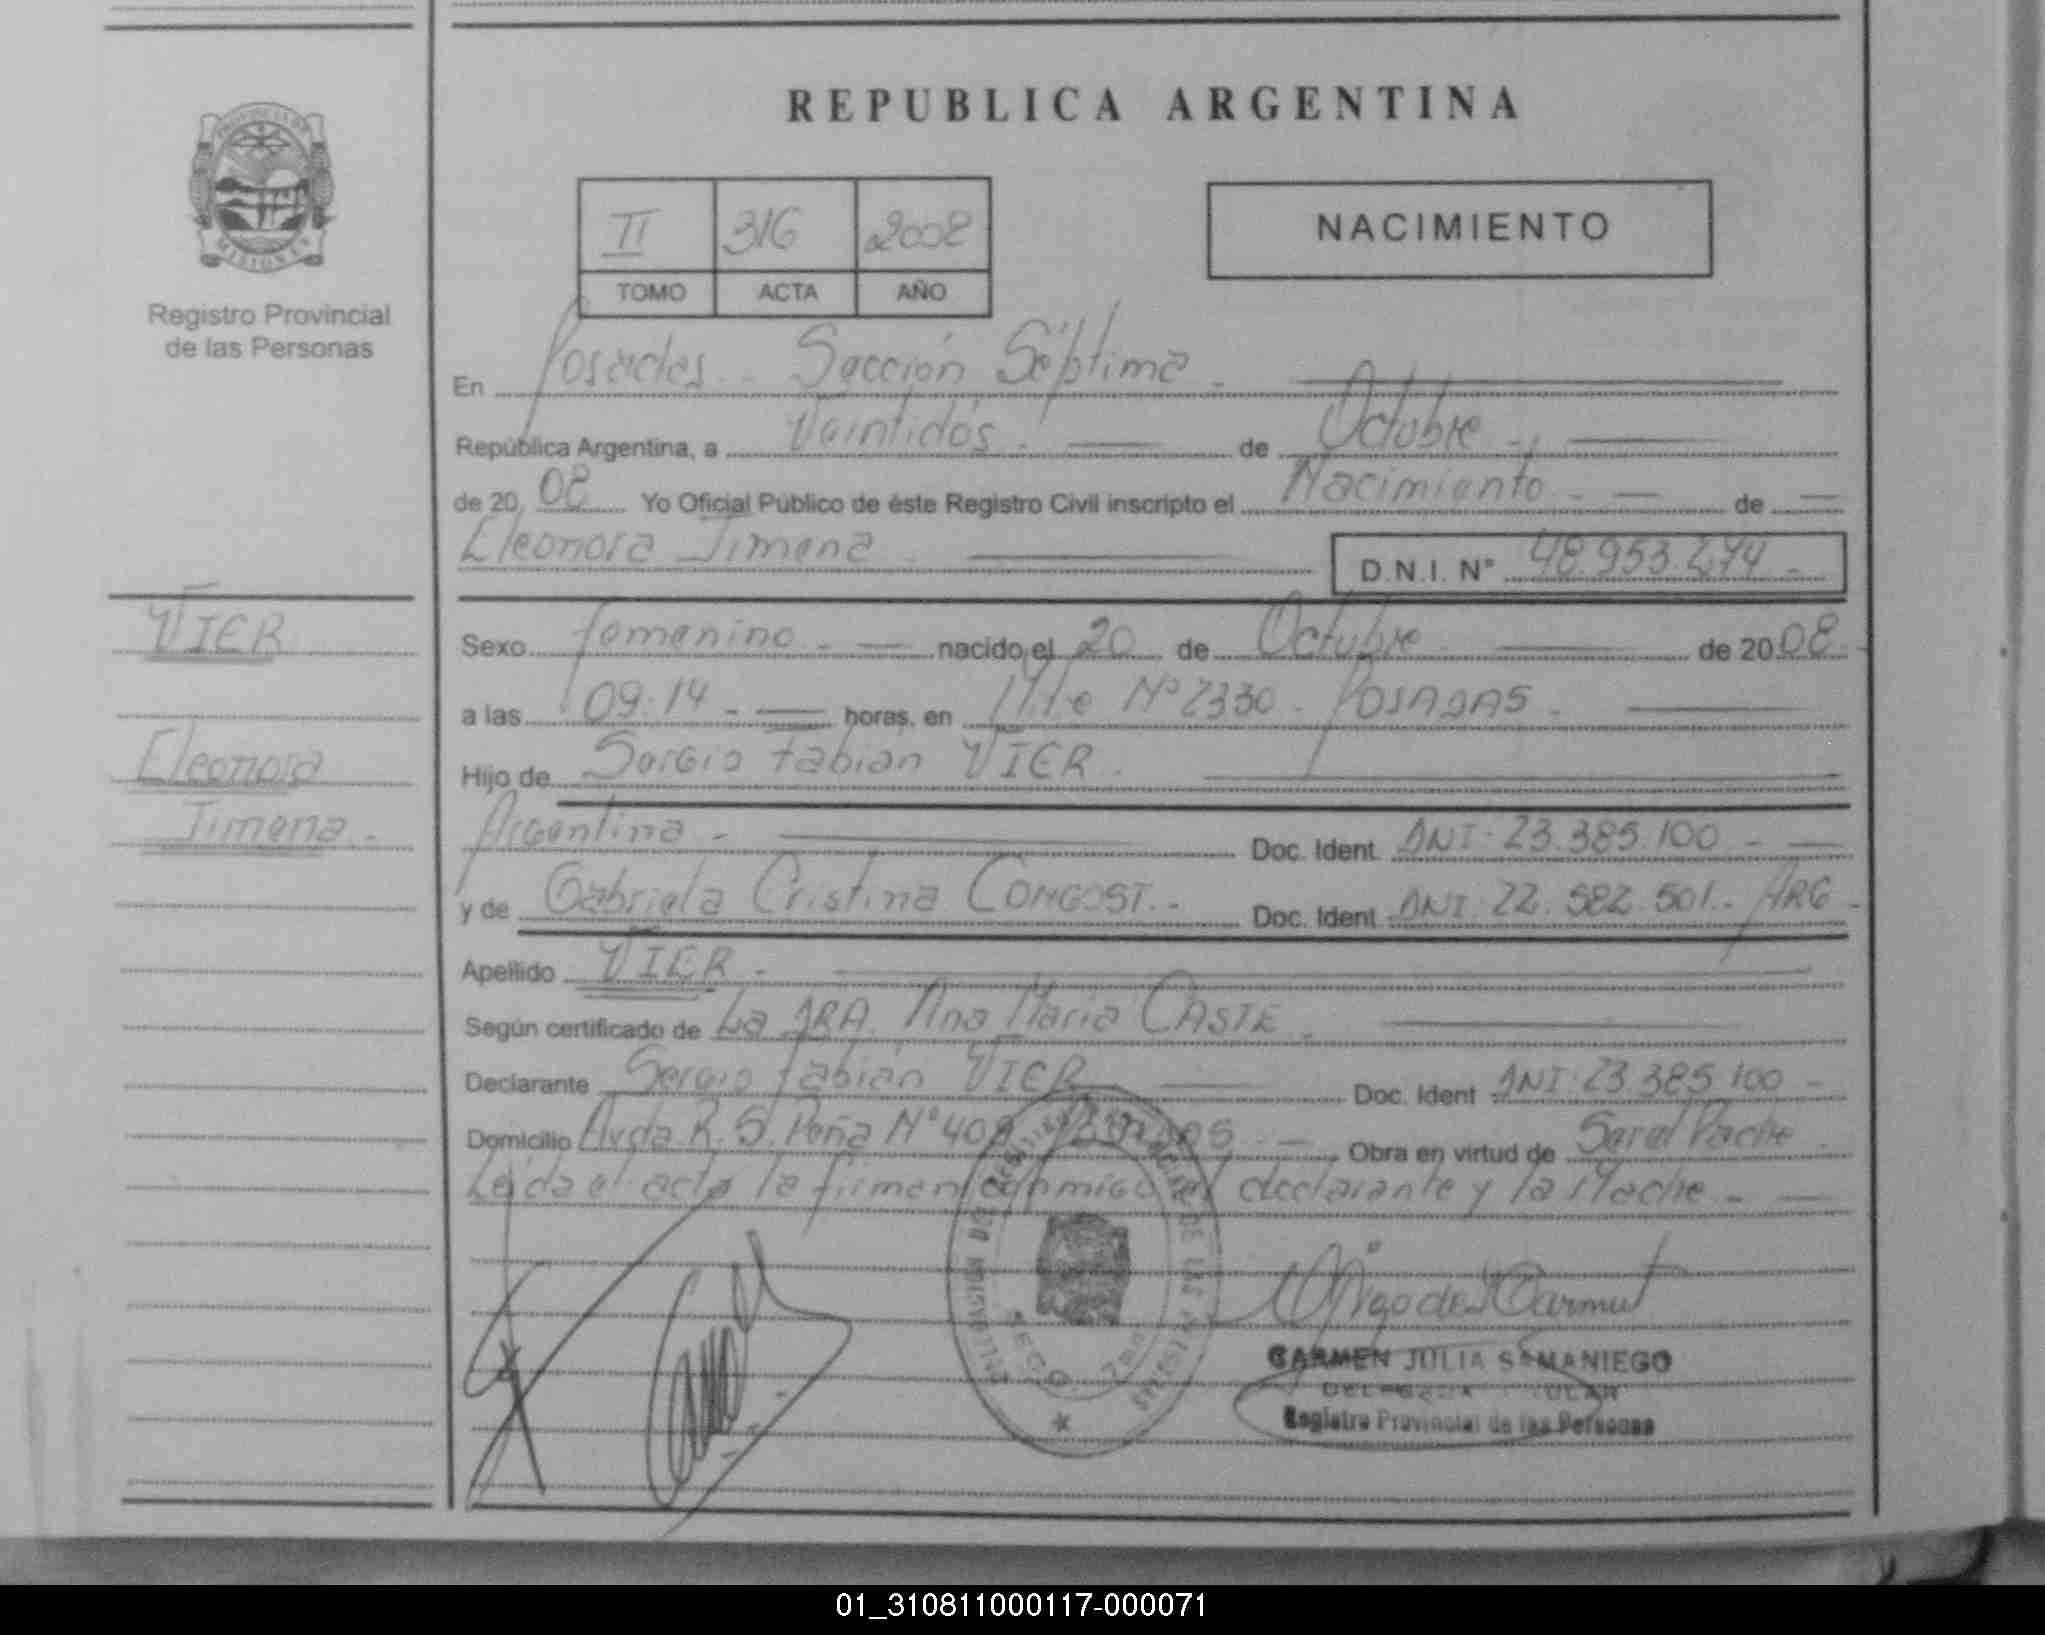 REPUBLICA ARGENTINA
PROVINCIA DE
MISIONES
Registro Provincial
de las Personas
II 316 2008
TOMO ACTA AÑO
NACIMIENTO
En Posadas - Sección Séptima -
República Argentina, a Veintidós - de Octubre -
de 2008 Yo Oficial Público de éste Registro Civil inscripto el Nacimiento - de
Eleonora Jimena D.N.I. Nº 48.953.274 -
VIER
Eleonora
Jimena -
Sexo femenino - nacido el 20 de Octubre de 2008 -
a las 09:14 - horas, en Nº 2330 - POSADAS -
Hijo de Sergio Fabián VIER.
Argentina - Doc. Ident. DNI: 23.385.100 -
y de Gabriela Cristina CONGOST. - Doc. Ident. DNI: 22.582.501.- ARG -
Apellido VIER -
Según certificado de La DRA. Ana María CASTE
Declarante Sergio Fabián VIER Doc. Ident DNI: 23.385.100 -
Domicilio Avda. R. S. Peña Nº 409 POSADAS - Obra en virtud de
Leída el acta la firman conmigo el declarante y la Madre -
CARMEN JULIA SAMANIEGO
Registro Provincial de las Personas
01_310811000117-000071